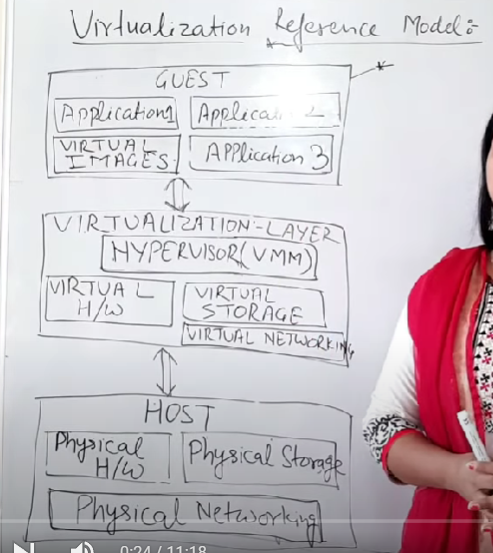 Virtualization Reference Model:-
GUEST
Application1
VIRTUAL IMAGES
APPlication 3
VIRTUALIZATION-LAYER
HYPERVISOR(VMM)
VIRTUAL H/W
VIRTUAL STORAGE
VIRTUAL NETWORKING
HOST
Physical H/W
Physical Storage
Physical Networking
0:24 / 11:18